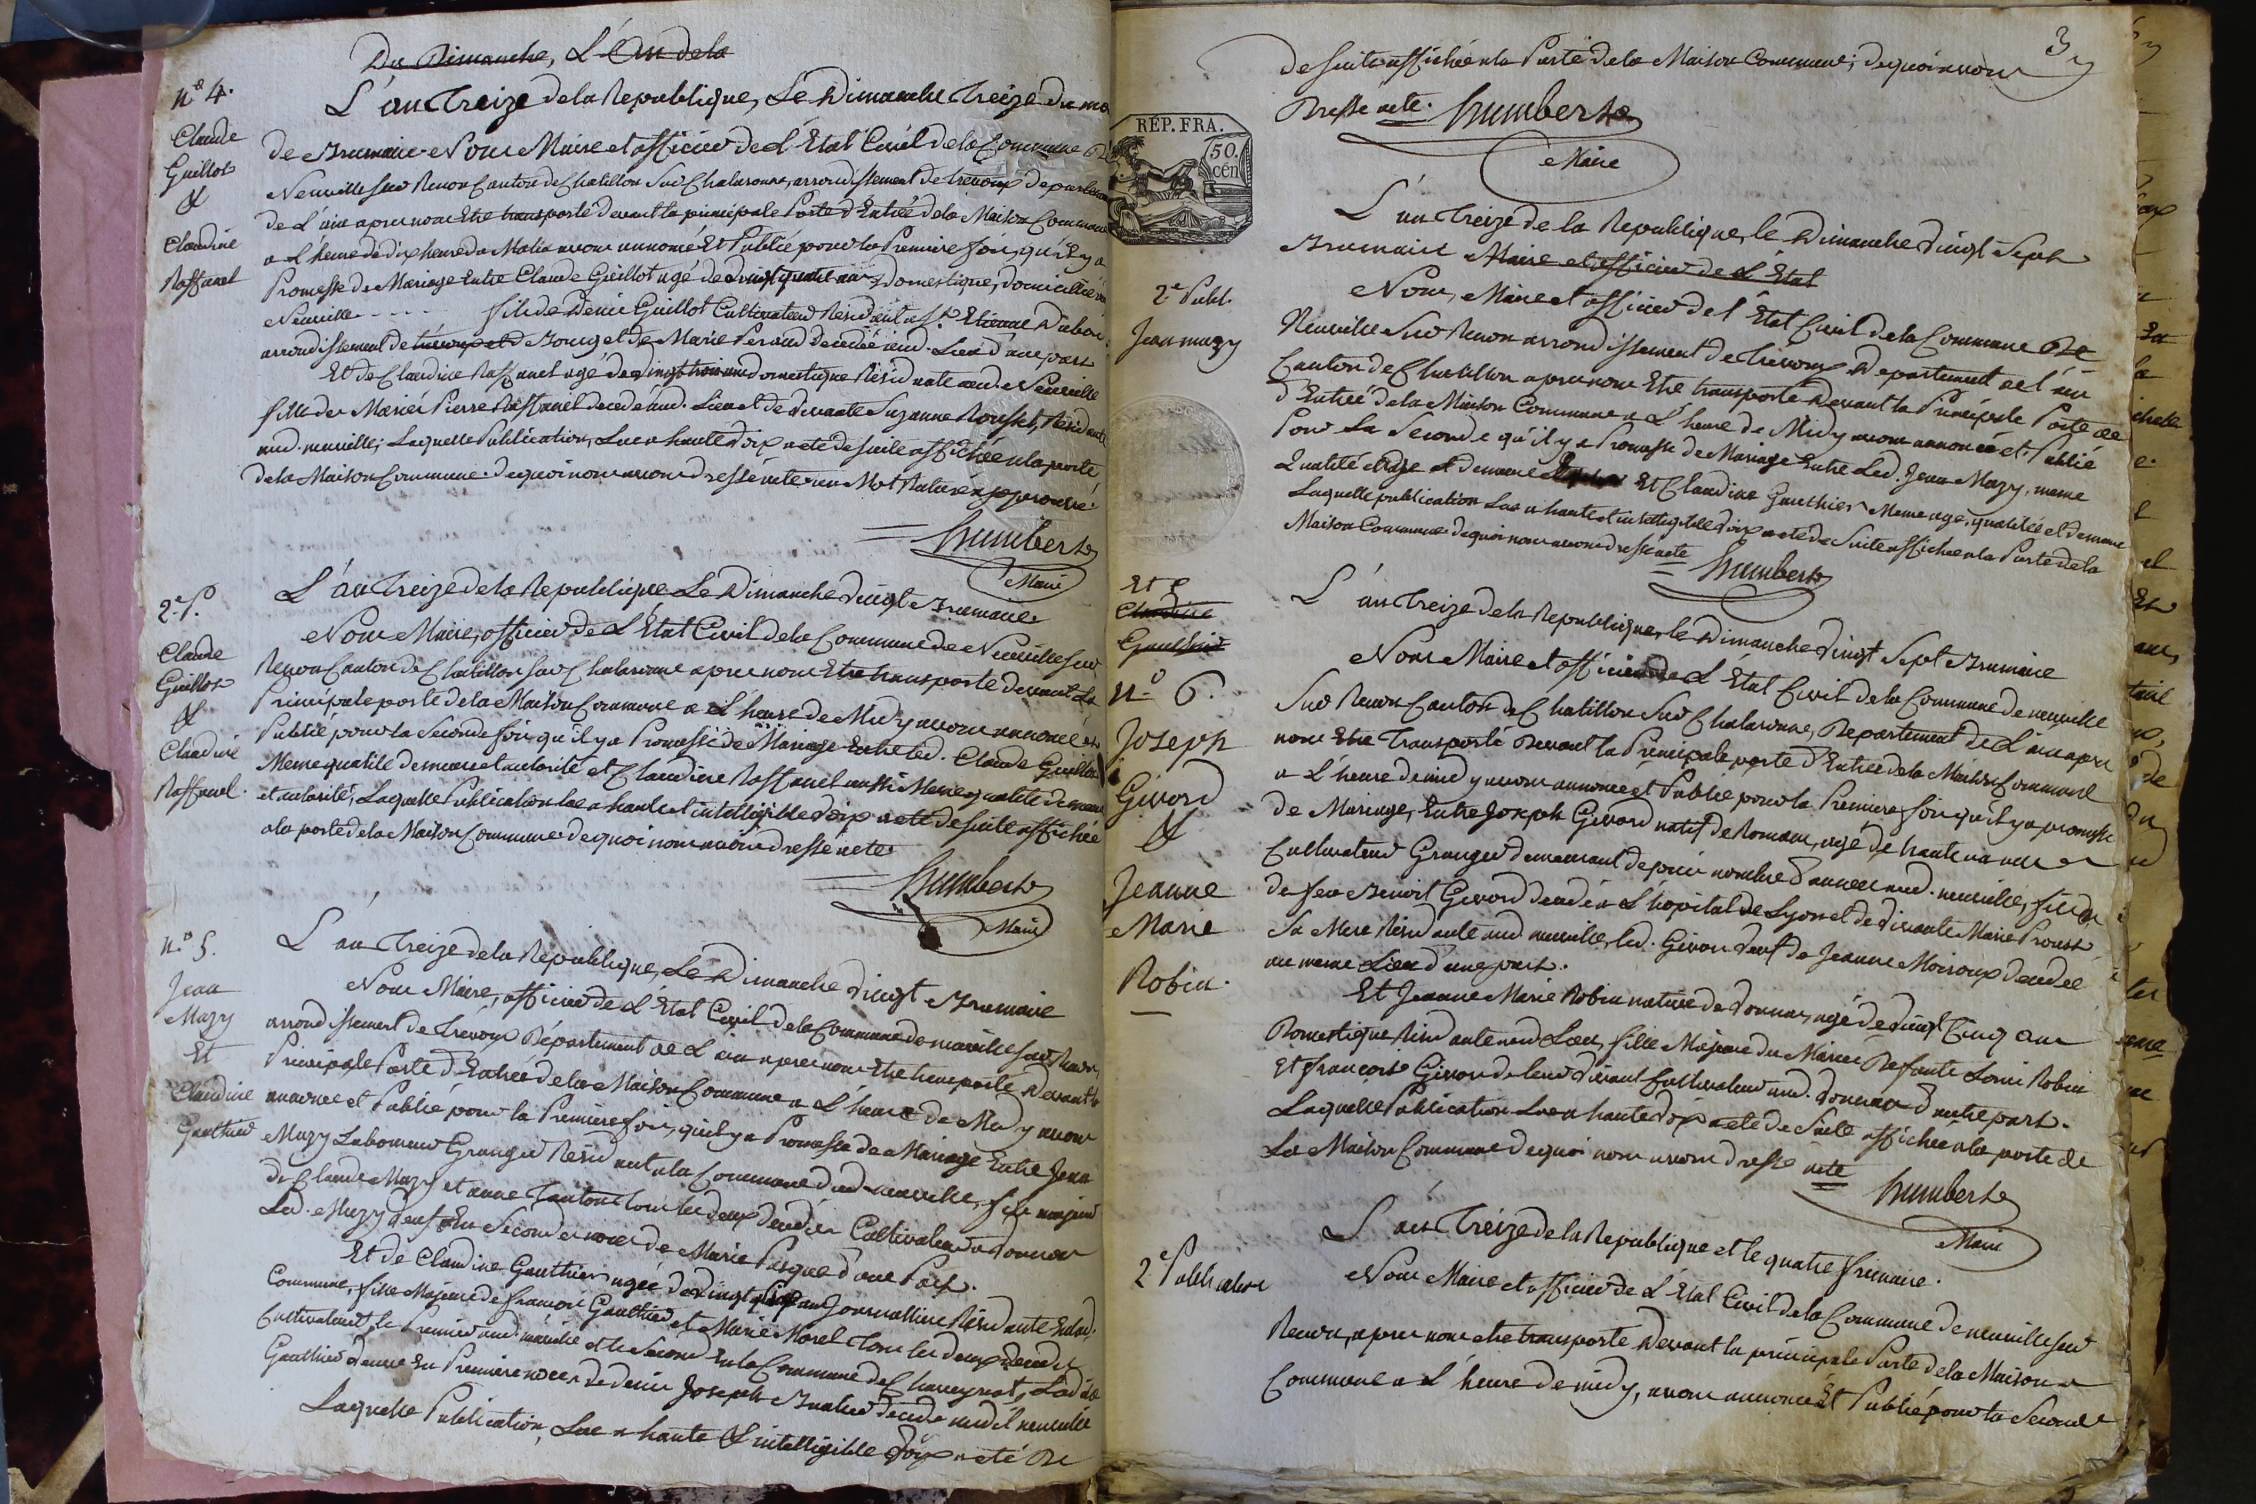 Du Dimanche, L'an de la
nº 4.
Claude
Guillot
&
Claudine
Raffanel
L'an Treize de la Republique, Le Dimanche Treize du moi
de Brumaire Nous Maire et officier de L'Etat Civil de la Commune de
Neuville sur Renon Canton de Chatillon sur Chalaronne, arrondissement de trevoux departement
de L'ain apres nous Etre transporté devant la principale Porte d'Entrée de la Maison Commune
a L'heure de dix heure du Matin avons annoncé Et Publié pour la Premiere fois, qu'il y a
Promesse de Mariage Entre Claude Guillot agé de vingt quatre ans domestique, domicillié
Neuville - - - - - fils de Denis Guillot Cultivateur Résidant a St. Etienne Dubois
arrondissement de et de Bourg et de Marie Peraud decedée aud. Lieu d'une part
Et de Claudine Raffanel agé de vingt trois ans domestique Résidante aud Neuville
fille des Mariés Pierre Raffanel decedé aud. Lieu et de vivante Suzanne Rousset, Résidante
aud. neuville; Laquelle Publication, Lue a haute voix a eté de suite affichée a la porte
de la Maison Commune. de quoi nous avons dressé acte un Mot Raturé approuvé
humbert
Maire
2.e P.
Claude
Guillot
&
Claudine
Raffanel.
L'an Treize de la Republique Le Dimanche vingt Brumaire
Nous Maire, officier de L'Etat Civil de la Commune de Neuville sur
Renon Canton de Chatillon sur Chalaronne apres nous Etre transporté devant La
Principale porte de la Maison Commune a L'heure de Midy avons annoncé et
Publié pour la Seconde fois qu'il y a Promesse de Mariage Entre led. Claude Guillot
Meme qualité demeure et autorité et Claudine Raffanel aussi Meme qualité demeure
et autorité, Laquelle Publication lue a haute et intelligible voix a eté de suite affichée
a la porte de la Maison Commune de quoi nous avons dressé acte
humbert
Maire
n.º 5.
Jean
Mazy
Et
Claudine
Gauthier
L'an Treize de la Republique, Le Dimanche vingt Brumaire
Nous Maire, officier de L'Etat Civil de la Commune de neuville sur Renon,
arrondissement de Trevoux Département de L'ain apres nous Etre transporté Devant la
Principale Porte d'Entrée de la Maison Commune a L'heure de Midy avons
annoncé et Publié pour la Premiere fois, qu'il y a Promesse de Mariage Entre Jean
Mazy Laboureur Granger Résidant a la Commune dud. neuville, fils majeur
de Claude Mazy et anne Tous les deux decedés Cultivateurs a
Led. Mazy veuf En Secondes noces de Marie Pasque d'une Part.
Et de Claudine Gauthier agée de vingt ans Journalliere Résidante En lad.
Commune, fille Majeure de françois Gauthier et Marie Morel Tous les deux decedés
Cultivateurs, le Premier aud. neuville et la Seconde En la Commune de Chaneyriat, Ladite
Gauthier veuve En Premiere noces de deni Joseph decedé aud. neuville
Laquelle Publication, Lue a haute & intelligible voix a eté De
3
de suite affichée a la Porte de la Maison Commune; de quoi avons
Dressé acte. humbert
Maire
RÉP. FRA.
50.
cen
2.e Publ.
Jean mazy
L'an Treize de la Republique, le Dimanche vingt Sept
Brumaire Maire et officier de L'Etat
Nous, Maire et officier de l'Etat Civil de la Commune De
Neuville Sur Renon arrondissement de Trevoux Departement de l'ain
Canton de Chatillon apres nous Etre transporté Devant la Principale Porte
d'Entrée de la Maison Commune a L'heure de Midy avons annoncé et Publié
Pour La Seconde qu'il y a Promesse de Mariage Entre Led. Jean Mazy, meme
Qualité et demeure Et Claudine Gauthier Meme age, qualité et demeure
Laquelle publication Lue a haute et intelligible voix a eté de Suite affichée a la Porte de la
Maison Commune de quoi nous avons dressé acte
humbert
Et
Claudine
Gauthier
n.º 6.
Joseph
Girord
&
Jeanne
Marie
Robin.
L'an Treize de la Republique, le Dimanche vingt Sept Brumaire
Nous Maire et officier de L'Etat Civil de la Commune de neuville
Sur Renon Canton de Chatillon Sur Chalaronne, Departement de L'ain apres
nous Etre Transporté Devant la Principale porte d'Entrée de la Maison Commune
a L'heure de midy avons annoncé et Publié pour la Premiere fois qu'il y a promesse
de Mariage, Entre Joseph Girord natif de Romans, agé de trente
Cultivateur Granger demeurant depuis nombre d'années aud. neuville, fils
de feu Benoit Girord decedé a L'hopital de Lyon et de vivante Marie Proust
Sa Mere Résidante aud neuville, led. Girord veuf de Jeanne Moiroux decedée
au meme Lieu d'une part.
Et Jeanne Marie Robin native de agé de vingt Cinq ans
Domestique Résidante aud Lieu, fille Majeure du Mariée Defunte Louis Robin
Et françoise Girord de leur vivant Cultivateurs aud. d'autre part.
Laquelle Publication Lue a haute voix a eté de Suite affichée a la porte de
La Maison Commune de quoi nous avons dressé acte
humbert
Maire
2.e Publication
L'an Treize de la Republique et le quatre frimaire.
Nous Maire et officier de L'Etat Civil de la Commune de neuville sur
Renon, apres nous etre transporté Devant la principale Porte de la Maison
Commune a L'heure de midy, avons annoncé Et Publié pour la Seconde